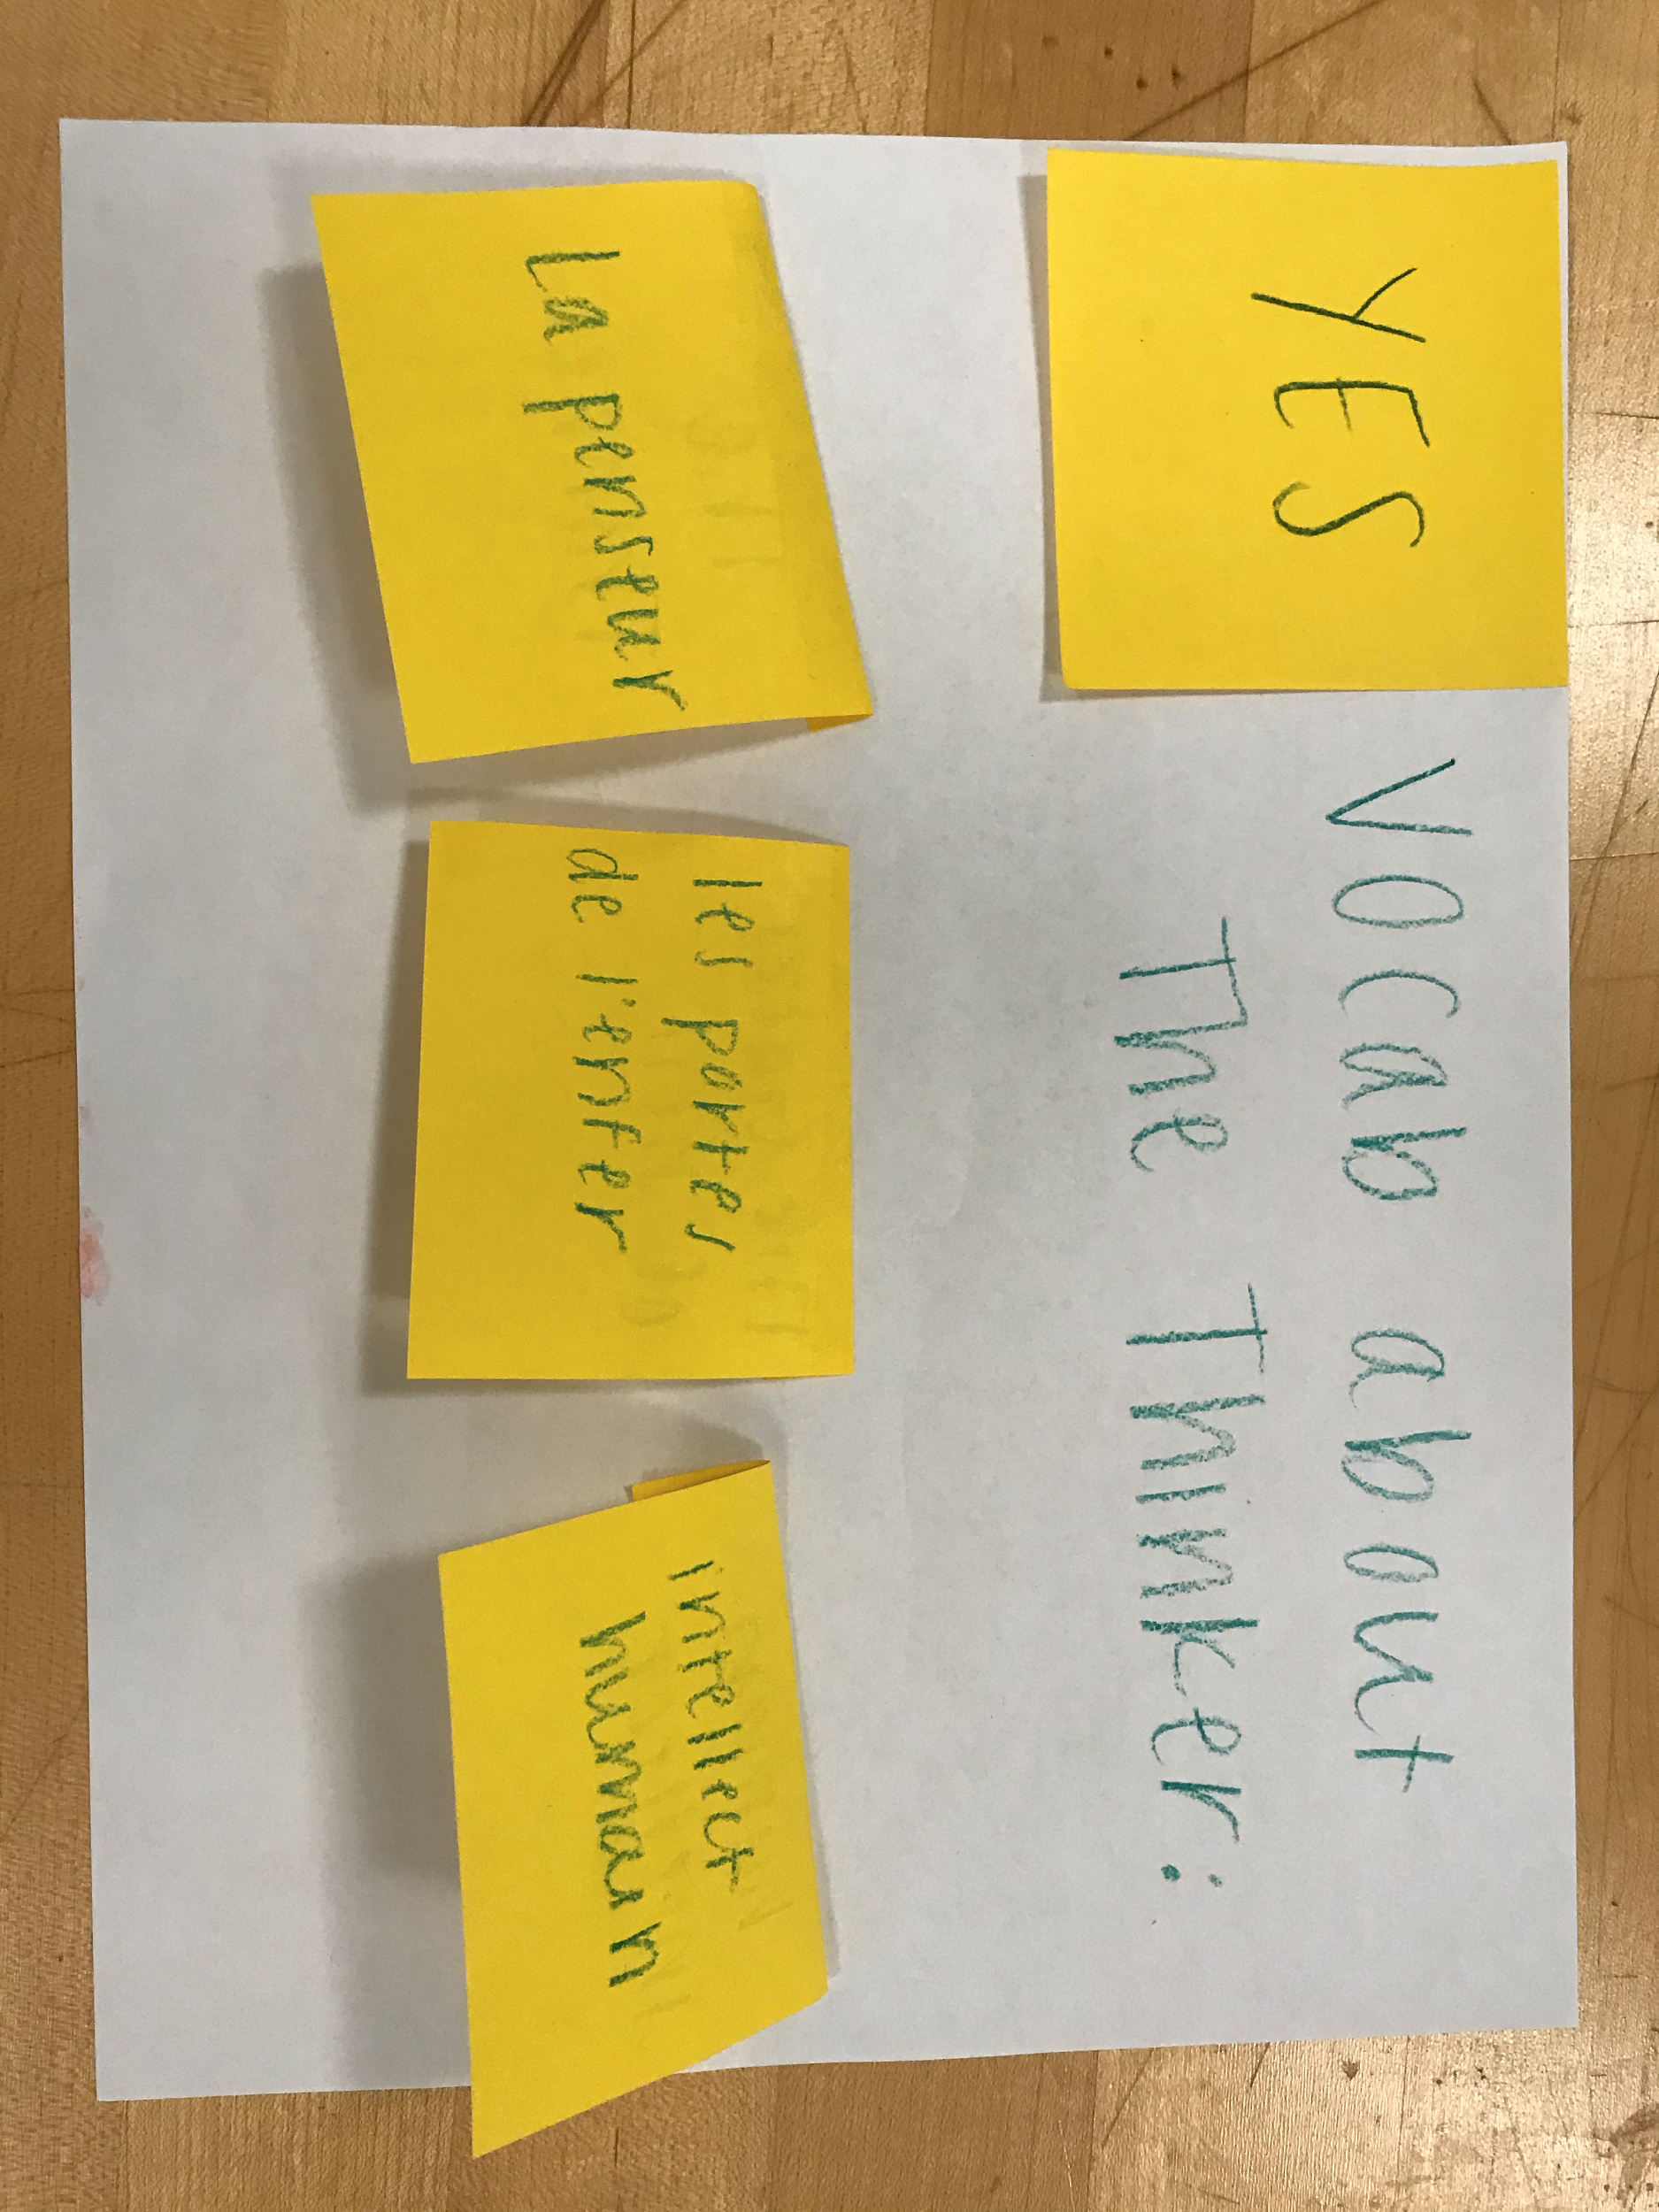 YES
Vocab about
The Thinker:
La penseur
les portes
de l'enfer
intellect
humain